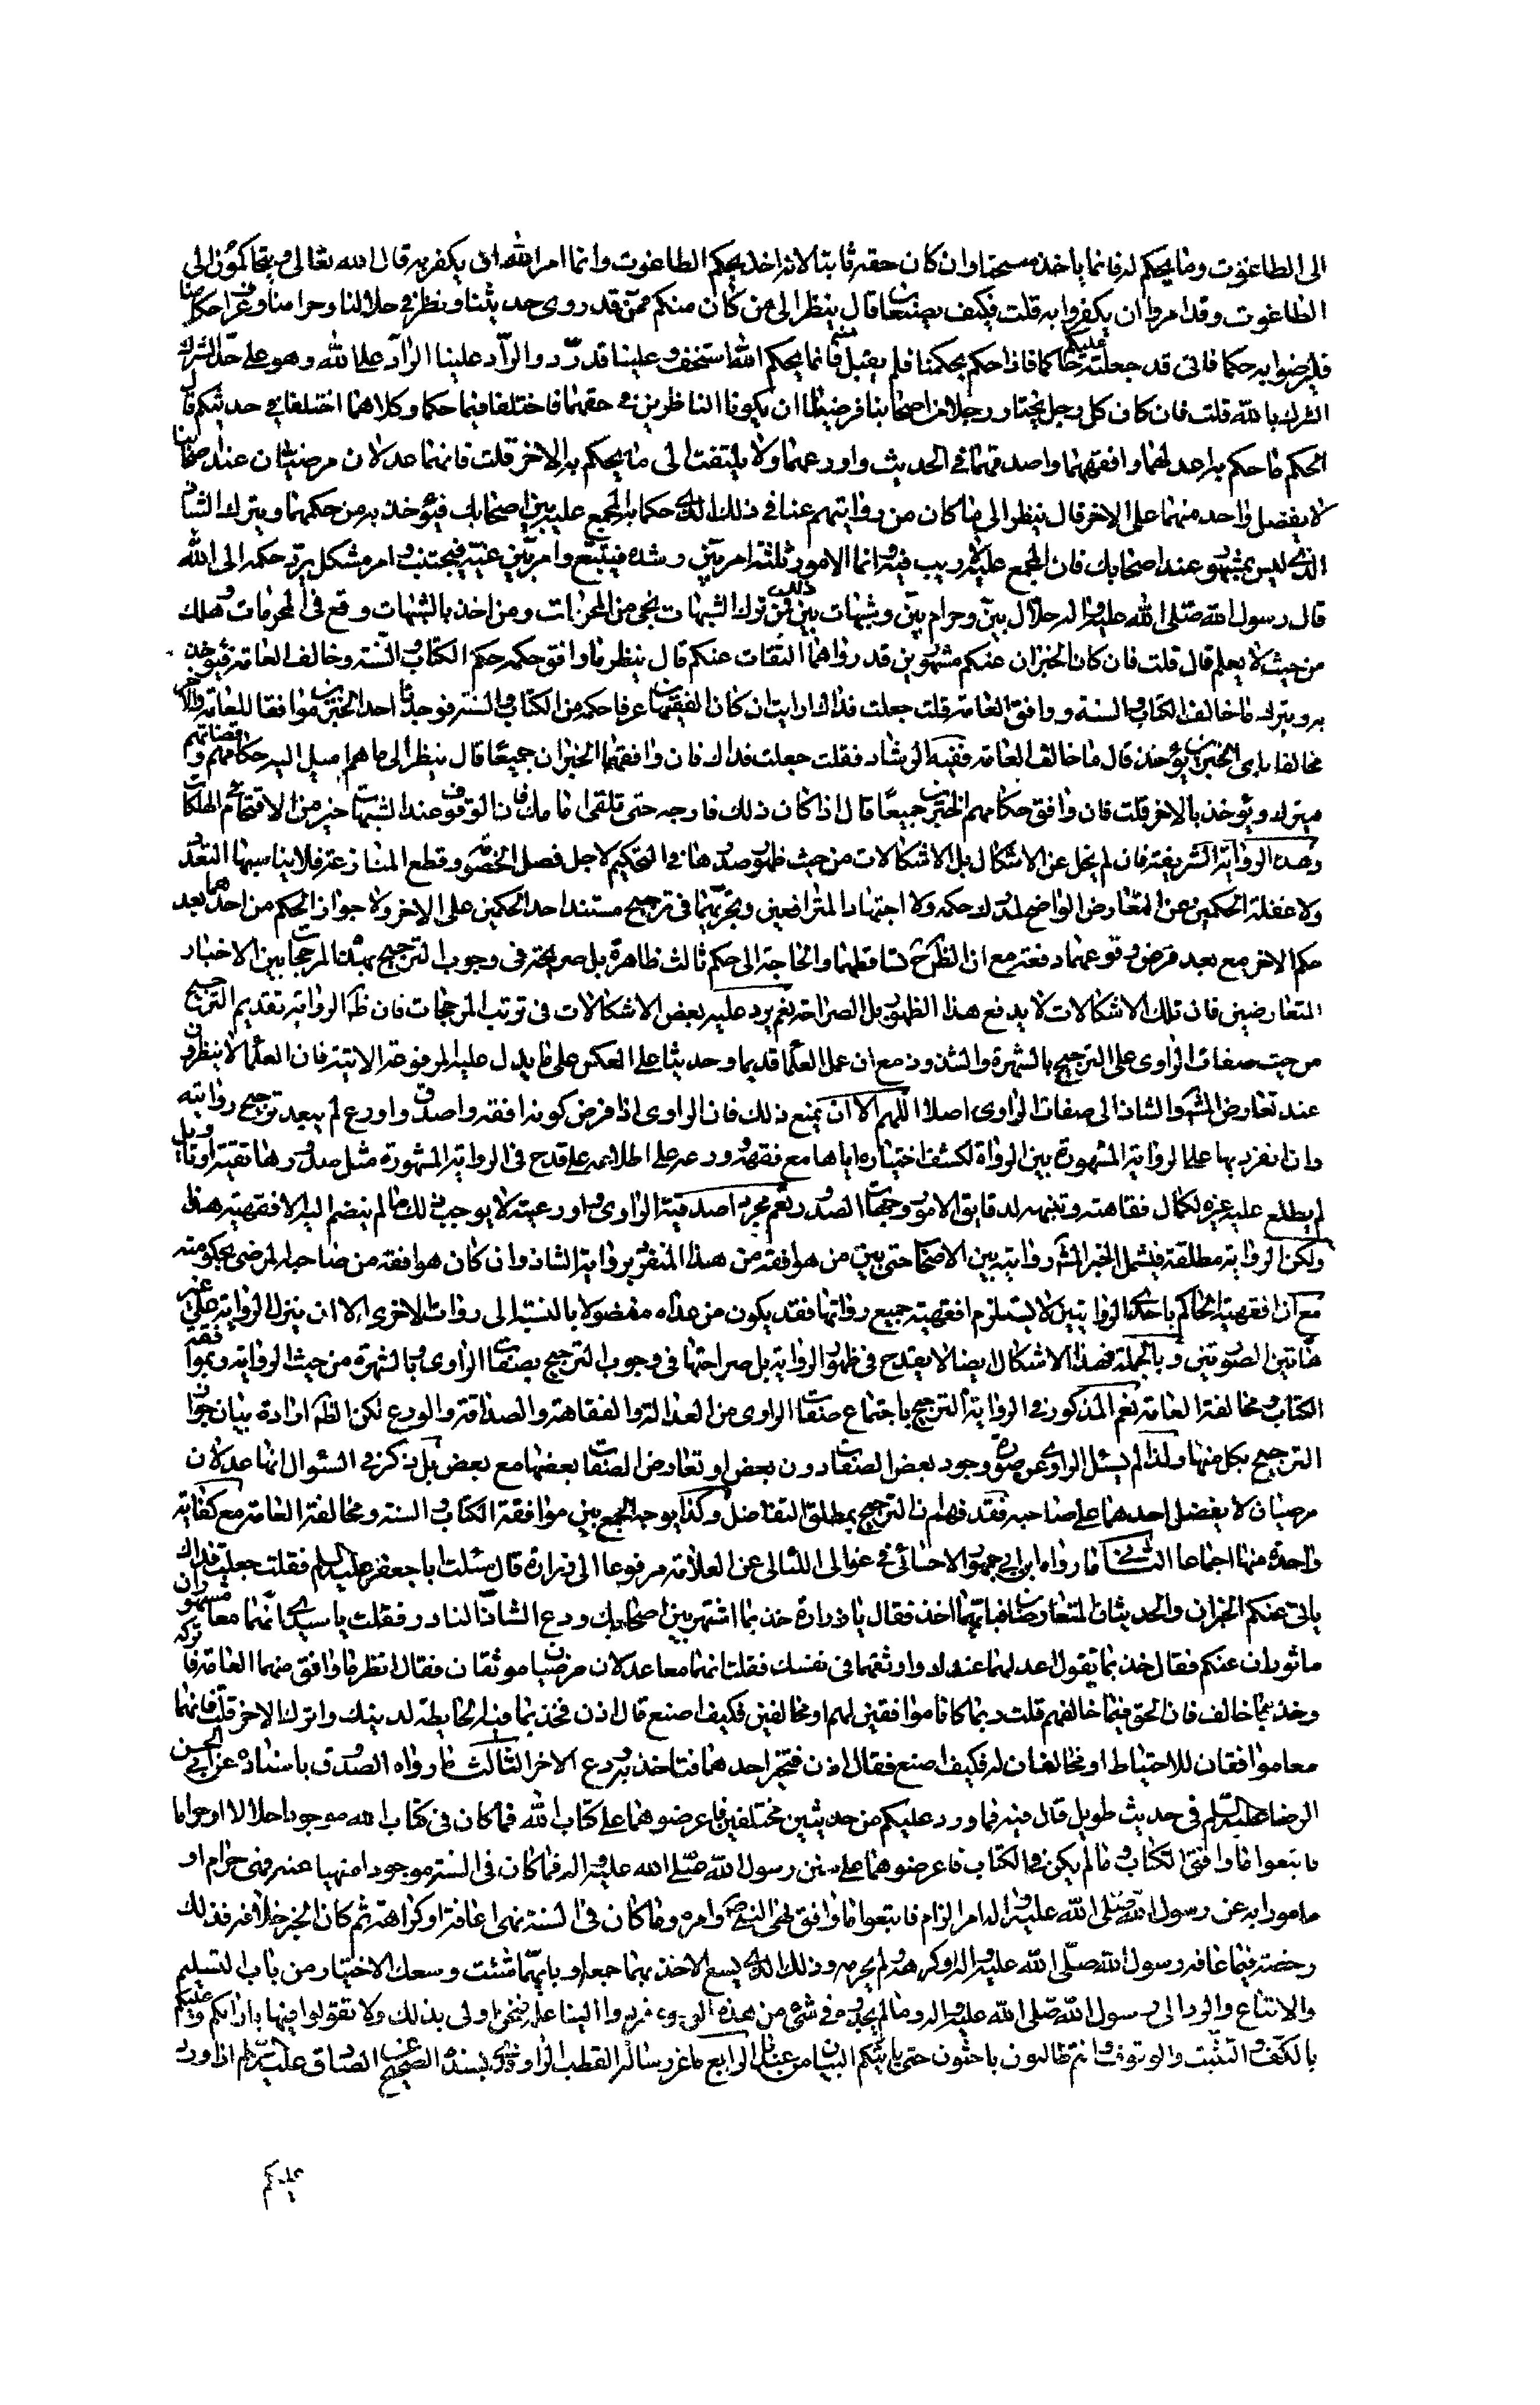 الى الطاغوت وما يحكم له فانما ياخذ سحتا وان كان حقه ثابتا لانه اخذ بحكم الطاغوت وانما امر الله ان يكفر به قال الله تعالى ويتحاكمون الى
الطاغوت وقد امروا ان يكفروا به قلت فكيف يصنعان قال ينظر الى من كان منكم ممن قد روى حديثنا ونظر في حلالنا وحرامنا وعرف احكامنا
فليرضوا به حكما فانى قد جعلته عليكم حاكما فاذا حكم بحكمنا فلم يقبل منه فانما بحكم الله استخف وعلينا قد رد والراد علينا الراد على الله وهو على حد الشرك
الشرك بالله قلت فان كان كل رجل يختار رجلا من اصحابنا فرضيا ان يكونا الناظرين في حقهما فاختلفا فيما حكما وكلاهما اختلفا في حديثكم قال
الحكم ما حكم به اعدلهما وافقههما واصدقهما في الحديث واورعهما ولا يلتفت الى ما يحكم به الاخر قلت فانهما عدلان مرضيان عند اصحابنا
لا يفضل واحد منهما على الاخر قال ينظر الى ما كان من روايتهم عنا في ذلك الذي حكما به المجمع عليه بين اصحابك فيؤخذ به من حكمهما ويترك الشاذ
الذي ليس بمشهور عند اصحابك فان المجمع عليه لا ريب فيه وانما الامور ثلثة امر بين رشده فيتبع وامر بين غيه فيجتنب وامر مشكل يرد حكمه الى الله
قال رسول الله صلى الله عليه واله حلال بين وحرام بين وشبهات بين ذلك فمن ترك الشبهات نجى من المحرمات ومن اخذ بالشبهات وقع في المحرمات وهلك
من حيث لا يعلم قال قلت فان كان الخبران عنكم مشهورين قد رواهما الثقات عنكم قال ينظر ما وافق حكمه حكم الكتاب والسنة وخالف العامة فيؤخذ
به ويترك ما خالف الكتاب والسنة ووافق العامة قلت جعلت فداك ارايت ان كان الفقيهان عرفا حكمه من الكتاب والسنة فوجدنا احد الخبرين موافقا للعامة والاخر
مخالفا باي الخبرين يؤخذ قال ما خالف العامة ففيه الرشاد فقلت جعلت فداك فان وافقهما الخبران جميعا قال ينظر الى ما هم اميل اليه حكامهم وقضاتهم
فيترك ويؤخذ بالاخر قلت فان وافق حكامهم الخبرين جميعا قال اذا كان ذلك فارجه حتى تلقى امامك فان الوقوف عند الشبهات خير من الاقتحام في الهلكات
وهذه الرواية الشريفة فان لم يخل عن الاشكال بل الاشكالات من حيث ظهور صدرها في التحكيم لاجل فصل الخصومة وقطع المنازعة فلا يناسبها التعدد
ولا غفلة الحكمين عن المعارض الواضح لمدرك حكمه ولا اجتهاد المترافعين وتحريهما في ترجيح مستند احد الحكمين على الاخر ولا جواز الحكم من احدهما بعد
حكم الاخر مع بعد فرض وقوعهما دفعة مع ان الظاهر ح تساقطهما والحاجة الى حكم ثالث ظاهرة بل صريحة في وجوب الترجيح بهذه المرجحات بين الاخبار
المتعارضين فان تلك الاشكالات لا يدفع هذا الظهور بل الصراحة نعم يرد عليه بعض الاشكالات في ترتب المرجحات فان ظاهر الرواية تقديم الترجيح
من حيث صفات الراوى على الترجيح بالشهرة والشذوذ مع ان عمل العلماء قديما وحديثا على العكس على ما يدل عليه المرفوعة الاتية فان العلماء لا ينظرون
عند تعارض المشهور والشاذ الى صفات الراوى اصلا اللهم الا ان يمنع ذلك فان الراوى اذا فرض كونه افقه واصدق واورع لم يبعد ترجيح روايته
وان انفرد بها على الرواية المشهورة بين الرواة لكشف اختياره اياها مع فقهه وورعه على اطلاعه على قدح في الرواية المشهورة مثل صدورها تقية او تاويل
لم يطلع عليه غيره لكمال فقاهته وتنبهه لدقايق الامور وجهات الصدور نعم مجرد اصدقية الراوى واورعيته لا يوجب ذلك ما لم ينضم اليه الافقهية هذا
ولكن الرواية مطلقة فيشمل الخبر المشهور روايته بين الاصحاب حتى بين من هو افقه من هذا المنفرد برواية الشاذ وان كان هو افقه من صاحبه المرضى بحكومته
مع ان افقهية الحاكم باحدى الروايتين لا يستلزم افقهية جميع رواتها فقد يكون من عداه مفضولا بالنسبة الى رواة الاخرى الا ان ينزل الرواية على غير
هاتين الصورتين وبالجملة فهذا الاشكال ايضا لا يقدح في ظهور الرواية بل صراحتها في وجوب الترجيح بصفات الراوى وبالشهرة من حيث الرواية وبموافقة
الكتاب ومخالفة العامة نعم المذكور في الرواية الترجيح باجتماع صفات الراوى من العدالة والفقاهة والصداقة والورع لكن الظاهر ارادة بيان جواز
الترجيح بكل منها ولذا لم يسئل الراوى عن صورة وجود بعض الصفات دون بعض او تعارض الصفات بعضها مع بعض بل ذكر في السئوال انهما عدلان
مرضيان لا يفضل احدهما على صاحبه فقد فهم ان الترجيح بمطلق التفاضل وكذا يوجه الجمع بين موافقة الكتاب والسنة ومخالفة العامة مع كفاية
واحدة منها اجماعا الثاني ما رواه ابن ابي جمهور الاحسائى في غوالى اللئالى عن العلامة مرفوعا الى زرارة قال سئلت ابا جعفر عليه السلام فقلت جعلت فداك
ياتى عنكم الخبران والحديثان المتعارضان فبايهما اخذ فقال يا زرارة خذ بما اشتهر بين اصحابك ودع الشاذ النادر فقلت يا سيدي انهما معا مشهوران
ماثوران عنكم فقال خذ بما يقول اعدلهما عندك واوثقهما في نفسك فقلت انهما معا عدلان مرضيان موثقان فقال انظر ما وافق منهما العامة فاتركه
وخذ بما خالف فان الحق فيما خالفهم قلت ربما كانا موافقين لهم او مخالفين فكيف اصنع قال اذن فخذ بما فيه الحايطة لدينك واترك الاخر قلت فانهما
معا موافقان للاحتياط او مخالفان له فكيف اصنع فقال اذن فتخير احدهما فتاخذ به ودع الاخر الثالث ما رواه الصدوق باسناده عن ابي الحسن
الرضا عليه السلام في حديث طويل قال فيه فما ورد عليكم من حديثين مختلفين فاعرضوهما على كتاب الله فما كان في كتاب الله موجودا حلالا او حراما
فاتبعوا ما وافق الكتاب وما لم يكن في الكتاب فاعرضوهما على سنن رسول الله صلى الله عليه واله فما كان في السنة موجودا منهيا عنه نهى حرام او
مامورا به عن رسول الله صلى الله عليه واله امر الزام فاتبعوا ما وافق نهى النبي ص وامره وما كان في السنة نهى اعافة او كراهة ثم كان الخبر خلافه فذلك
رخصة فيما عافه رسول الله صلى الله عليه واله وكرهه ولم يحرمه وذلك الذي يسع الاخذ بهما جميعا وبايهما شئت وسعك الاختيار من باب التسليم
والاتباع والرد الى رسول الله صلى الله عليه واله وما لم تجدوه في شئ من هذه الوجوه فردوا الينا علمه فنحن اولى بذلك ولا تقولوا فيها بارائكم وعليكم
بالكف والتثبت والوقوف وانتم طالبون باحثون حتى ياتيكم البيان من عندنا الرابع ما عن رسالة القطب الراوندي بسنده الصحيح عن الصادق عليه السلام اذا ورد
عليكم